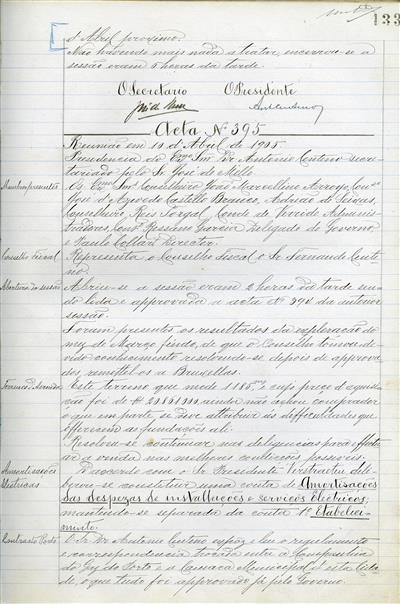 133
d'Abril proximo.
Não havendo mais nada a tratar, encerrou-se a
sessão eram 5 horas da tarde.
O Secretario O Presidente
José de Mello
Acta Nº 395
Reunião em 10 d'Abril de 1905.
Presidencia do Exmo Snr Dr Antonio Centeno secre-
tariado pelo Sr José de Mello
Membros presentes
Os Exmos Snrs Conselheiro João Marcellino Arroyo, Con
José d'Azevedo Castello Branco, Adrião de Seixas,
Conselheiro Reis Torgal, Conde de Verride Adminis-
tradores, Conso Rossano Garcia Delegado do Governo
e Paulo Collard Director.
Conselho Fiscal
Representa o Conselho Fiscal o Sr Fernando Cente-
no.
Abertura da sessão
Abriu-se a sessão eram 2 horas da tarde sen-
do lida e approvada a acta Nº 394 da anterior
sessão.
Foram presentes os resultados da exploração do
mez de Março findo, de que o Conselho tomou de-
vido conhecimento resolvendo-se depois de approva-
dos remettel-os a Bruxellas.
Este terreno que mede 1885 e cujo preço d'aquisi-
ção foi de ainda não achou comprador
o que em parte se deve attribuir ás difficuldades que
offerecem as fundações ali.
Resolveu-se continuar nas diligencias para effectu-
ar a venda nas melhores condições possiveis.
Amortisações
Electricas
D'accordo com o Sr Presidente Verstraeten deli-
berou-se constituir uma conta de Amortisações
das despezas de installações e serviços Electricos,
mantendo-se separada da conta 1º Etabelisse-
ment.
Contracto Porto
O Sr Dr Antonio Centeno expoz e leu o regulamento
e correspondencia trocada entre a Companhia
do Gaz do Porto e a Camara Municipal d'esta Cida-
de, o que tudo foi approvado já pelo Governo.